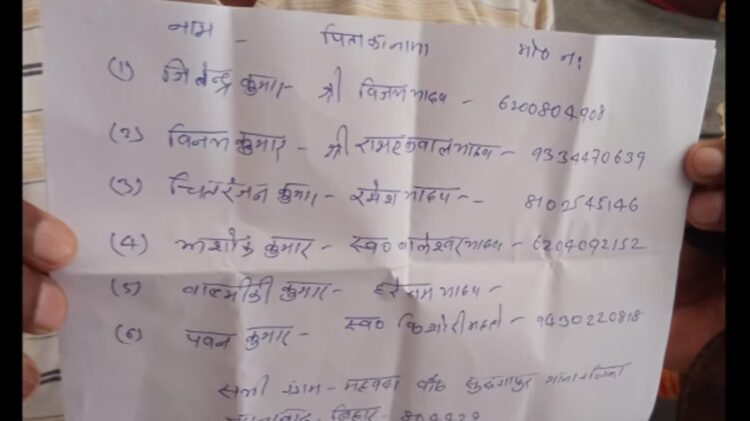 नाम - पिता का नाम मो० न:
(1) जितेन्द्र कुमार - श्री विजय यादव - 6200804908
(2) विनय कुमार - श्री रामइकवाल यादव - 9334470639
(3) चितरंजन कुमार - रमेश यादव - - 8102545146
(4) अशोक कुमार - स्व० बालेश्वर यादव - 6204092152
(5) वाल्मीकी कुमार - हरे राम यादव -
(6) पवन कुमार - स्व० किशोरी महतो - 9430220818
सभी ग्राम - थाना + जिला
बिहार -